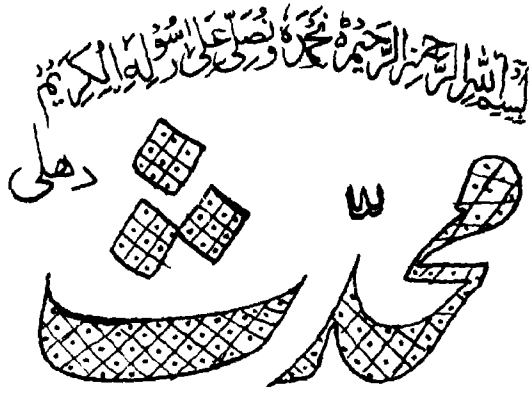 بِسْمِ اللهِ الرَّحْمٰنِ الرَّحِيْمِ نَحْمَدُهٗ وَنُصَلِّيْ عَلٰى رَسُوْلِهِ الْكَرِيْمِ
محدّث
دهلی